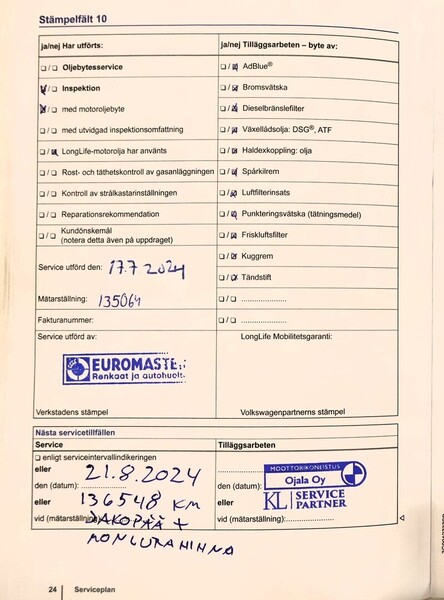 Stämpelfält 10
ja/nej Har utförts:
ja/nej Tilläggsarbeten – byte av:
Oljebytesservice
AdBlue®
Inspektion
Bromsvätska
med motoroljebyte
Dieselbränslefilter
med utvidgad inspektionsomfattning
Växellådsolja: DSG®, ATF
LongLife-motorolja har använts
Haldexkoppling: olja
Rost- och täthetskontroll av gasanläggningen
Spårkilrem
Kontroll av strålkastarinställningen
Luftfilterinsats
Reparationsrekommendation
Punkteringsvätska (tätningsmedel)
Kundönskemål
(notera detta även på uppdraget)
Friskluftsfilter
Kuggrem
Service utförd den: 17.7 2024
Tändstift
Mätarställning: 135064
Fakturanummer:
Service utförd av:
LongLife Mobilitetsgaranti:
EUROMASTER
Renkaat ja autohuolt.
Verkstadens stämpel
Volkswagenpartnerns stämpel
Nästa servicetillfällen
Service
Tilläggsarbeten
enligt serviceintervallindikeringen
eller
den (datum): 21.8.2024
MOOTTORIKONEISTUS
Ojala Oy
KL SERVICE
PARTNER
den (datum):
eller 136548 KM
eller
vid (mätarställning): JAKOPÄÄ +
vid (mätarställning):
MONIURAHIHNA
24 Serviceplan